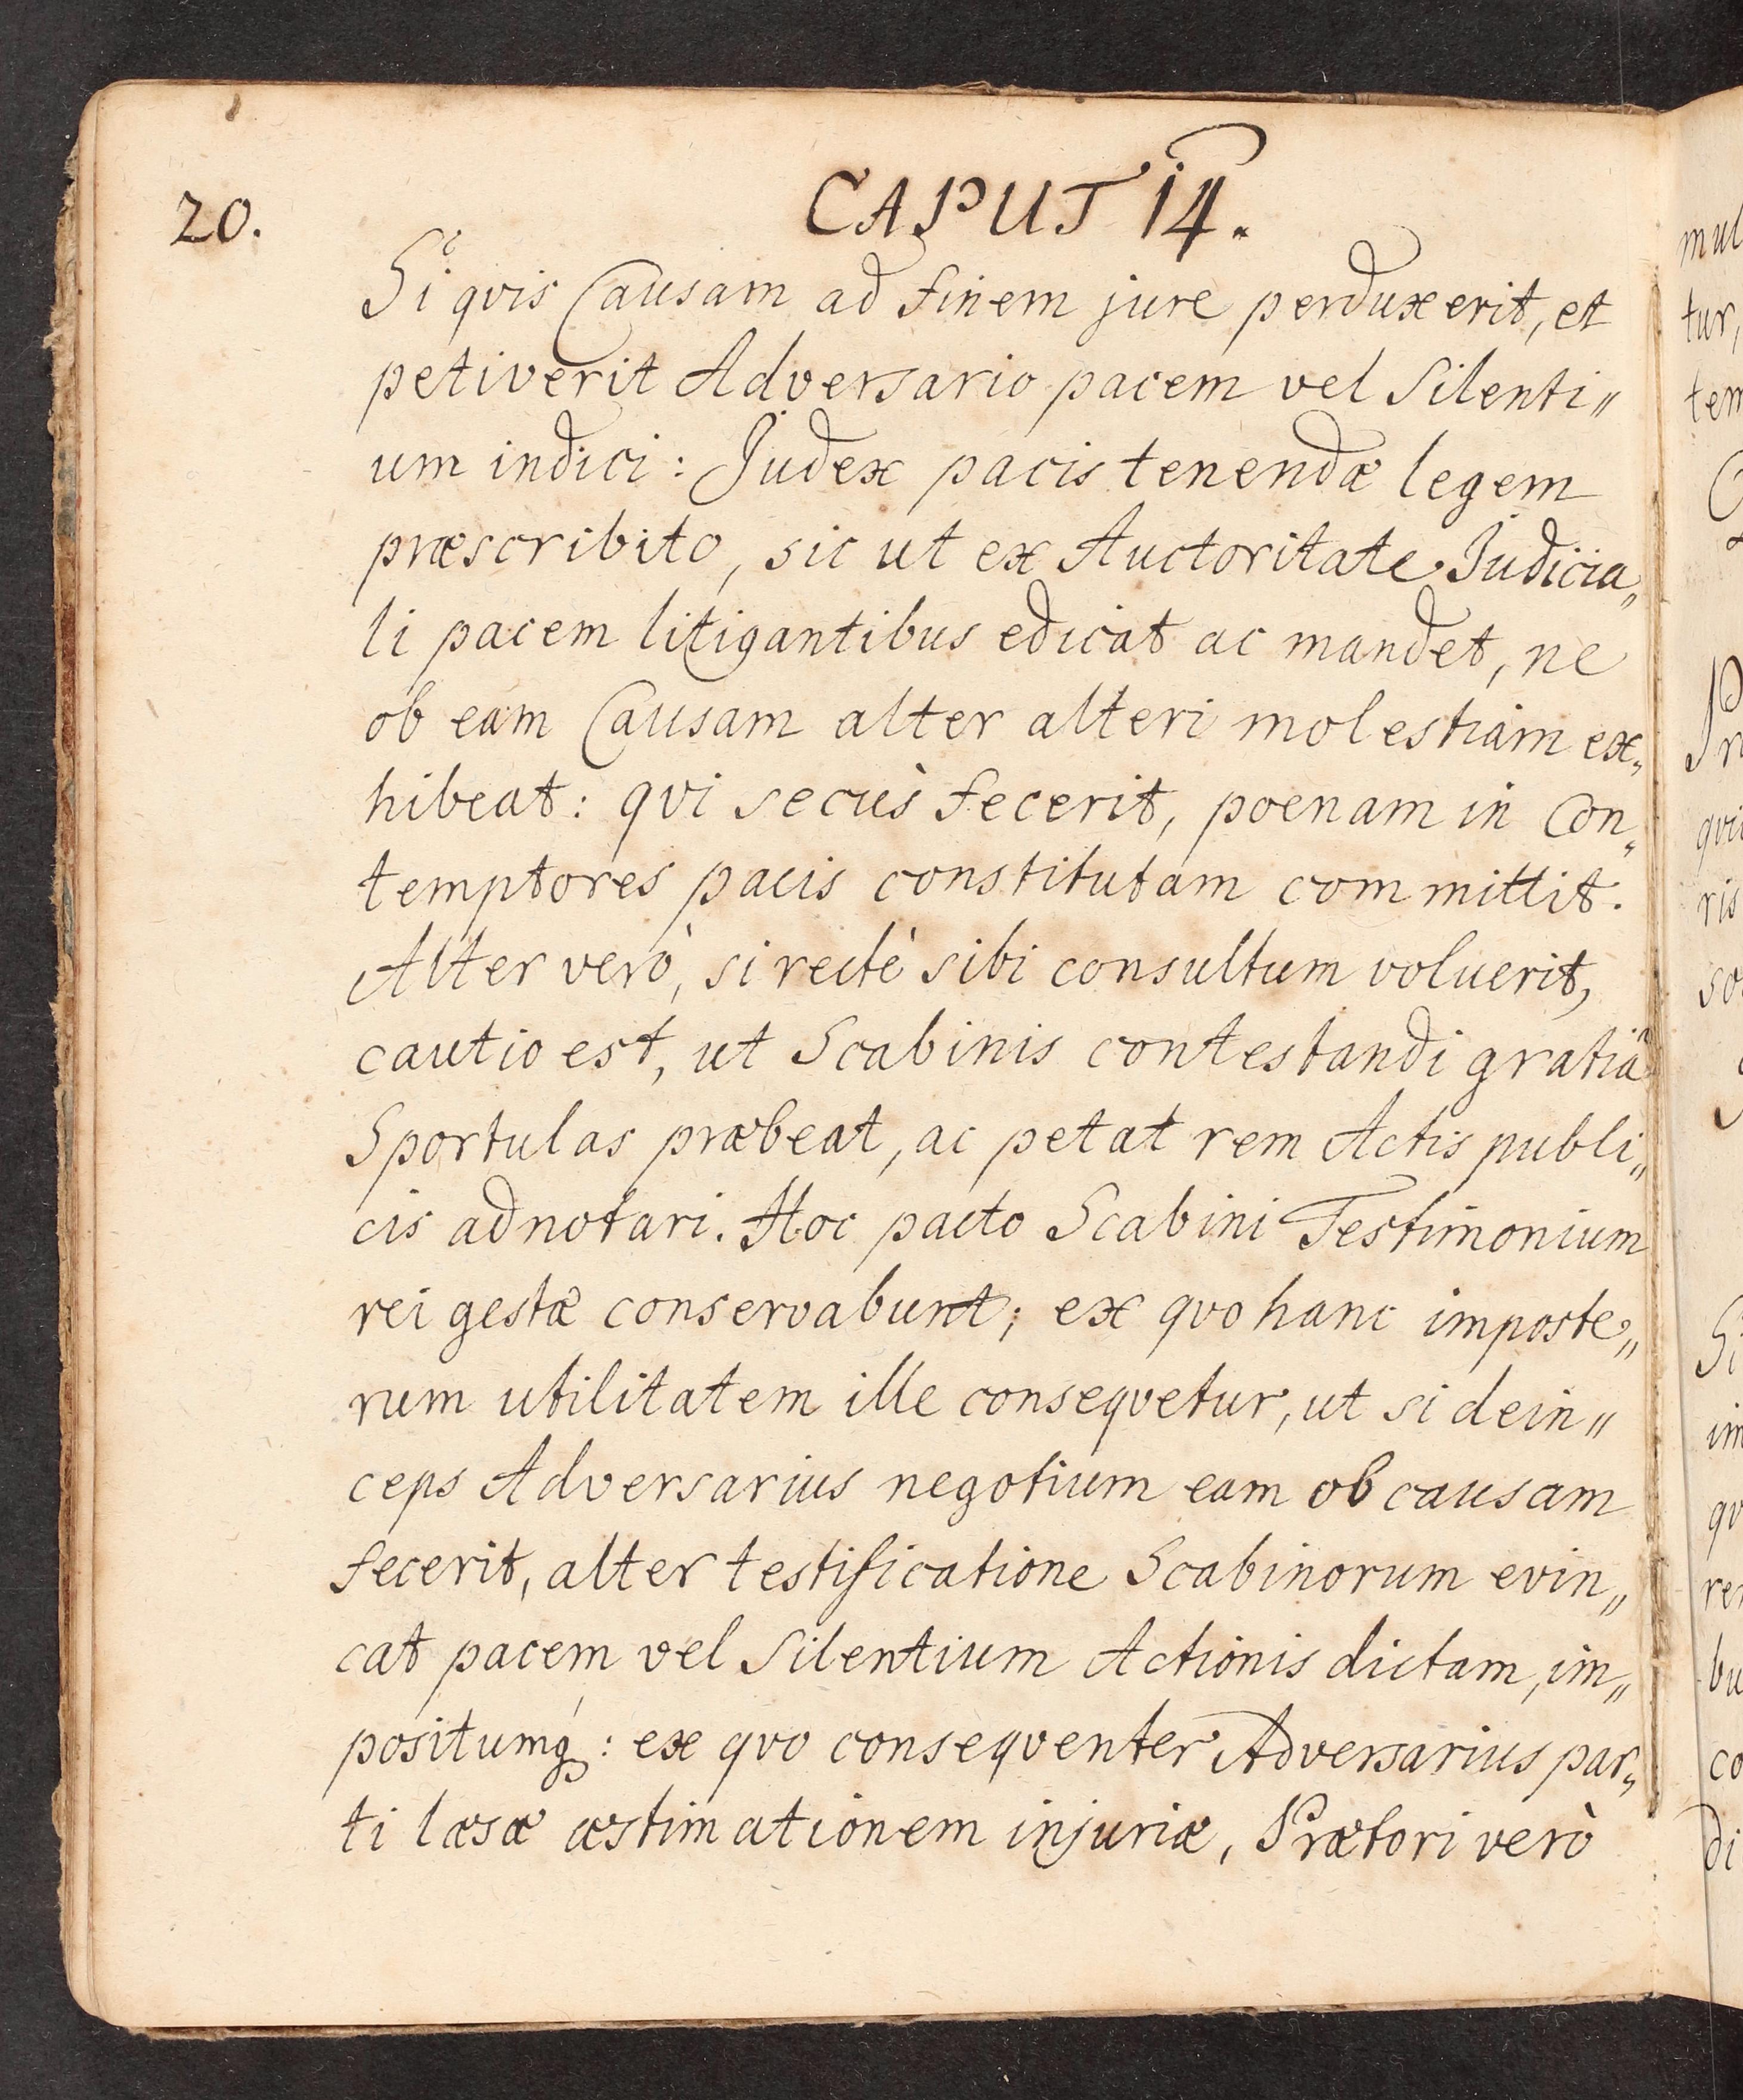 20.
CAPUT 14.
Si qvis Causam ad finem jure perduxerit, et
petiverit Adversario pacem vel Silenti„
um indici: Judex pacis tenendæ legem
præscribito, sic ut ex Auctoritate Judicia„
li pacem litigantibus edicat ac mandet, ne
ob eam Causam alter alteri molestiam ex„
hibeat: qvi secùs fecerit, poenam in Con„
temptores pacis constitutam committit.
Alter verò, si rectè sibi consultum voluerit,
cautio est, ut Scabinis contestandi gratiâ
Sportulas præbeat, ac petat rem Actis publi„
cis adnotari. Hoc pacto Scabini Testimonium
rei gestæ conservabunt; ex qvo hanc imposte„
rum utilitatem ille conseqvetur, ut si dein„
ceps Adversarius negotium eam ob causam
fecerit, alter testificatione Scabinorum evin„
cat pacem vel Silentium Actionis dictam, im„
positumq́; : ex qvo conseqventer Adversarius par„
ti læsæ æstimationem injuriæ, Prætori verò
mul
tur,
tem
qvi
ris
so
Si
im
qv
rer
bu
co
di